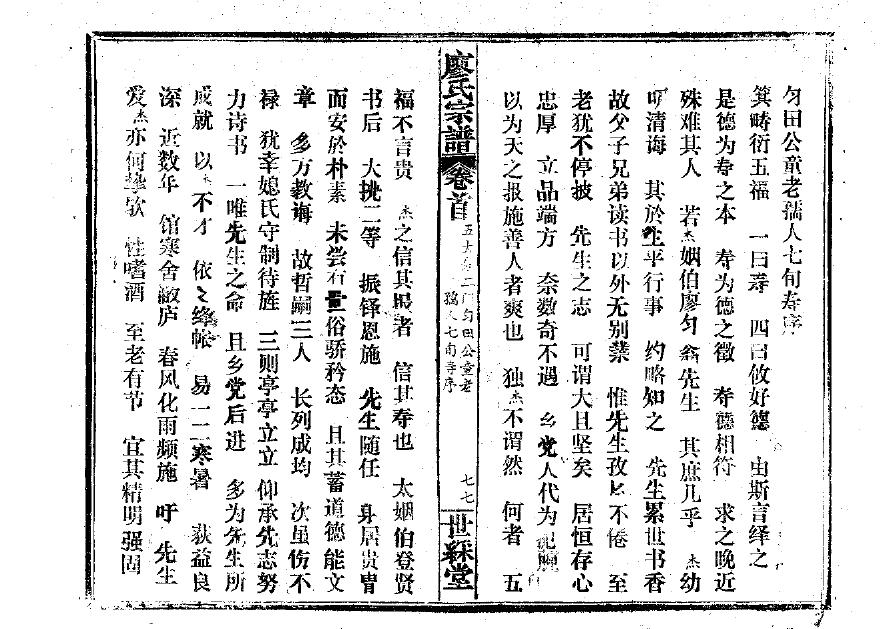 匀田公童老孺人七旬寿序
箕畴衍五福　一曰寿　四曰攸好德　由斯言绎之
是德为寿之本　寿为德之徵　寿德相符　求之晚近
殊难其人　若杰姻伯廖匀翁先生　其庶几乎　杰幼
叨清诲　其於生平行事　约略知之　先生累世书香
故父子兄弟读书以外无别业　惟先生孜々不倦　至
老犹不停披　先生之志　可谓大且坚矣　居恒存心
忠厚　立品端方　奈数奇不遇　乡党人代为
以为天之报施善人者爽也　独杰不谓然　何者　五
廖氏宗谱　卷首　二门匀田公童老孺人七旬寿序　七七　世綵堂
福不言贵　杰之信其报者　信其寿也　太姻伯登贤
书后　大挑二等　振铎恩施　先生随任　身居贵胄
而安於朴素　未尝有世俗骄矜态　且其蓄道德能文
章　多方教诲　故哲嗣三人　长列成均　次虽伤不
禄　犹幸媳氏守制待旌　三则亭亭立立　仰承先志努
力诗书　一唯先生之命　且乡党后进　多为先生所
成就　以杰不才　依々绛帐　易一二寒暑　获益良
深　近数年　馆寒舍敝庐　春风化雨频施　吁　先生
爱杰亦何挚欤　性嗜酒　至老有节　宜其精明强固